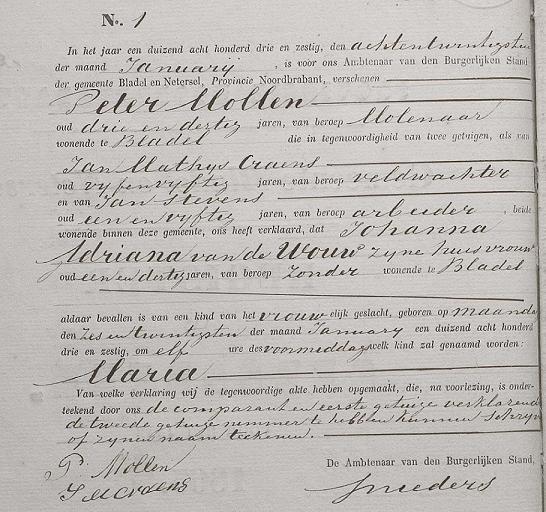 N°. 1
In het jaar een duizend acht honderd drie en zestig, den achtentwintigsten
der maand January, is voor ons Ambtenaar van den Burgerlijken Stand
der gemeente Bladel en Netersel, Provincie Noordbrabant, verschenen
Peter Mollen
oud drie en dertig jaren, van beroep Molenaar
wonende te Bladel die in tegenwoordigheid van twee getuigen, als van
Jan Mathys Craens
oud vyfenvyftig jaren, van beroep veldwachter
en van Jan Stevens
oud een en vyftig jaren, van beroep arbeider, beide
wonende binnen deze gemeente, ons heeft verklaard, dat Johanna
Adriana van de Wouw zyne huisvrouw
oud een en dertig jaren, van beroep zonder wonende te Bladel
aldaar bevallen is van een kind van het vrouwelijk geslacht, geboren op maandag
den zes en twintigsten der maand January een duizend acht honderd
drie en zestig, om elf ure des voormiddags welk kind zal genaamd worden:
Maria
Van welke verklaring wij de tegenwoordige akte hebben opgemaakt, die, na voorlezing, is onder-
teekend door ons de comparant en eerste getuige verklarende
de tweede getuige nimmer te hebben kunnen schryven
of zynen naam teekenen.
P. Mollen
J M Craens
De Ambtenaar van den Burgerlijken Stand,
Smeders